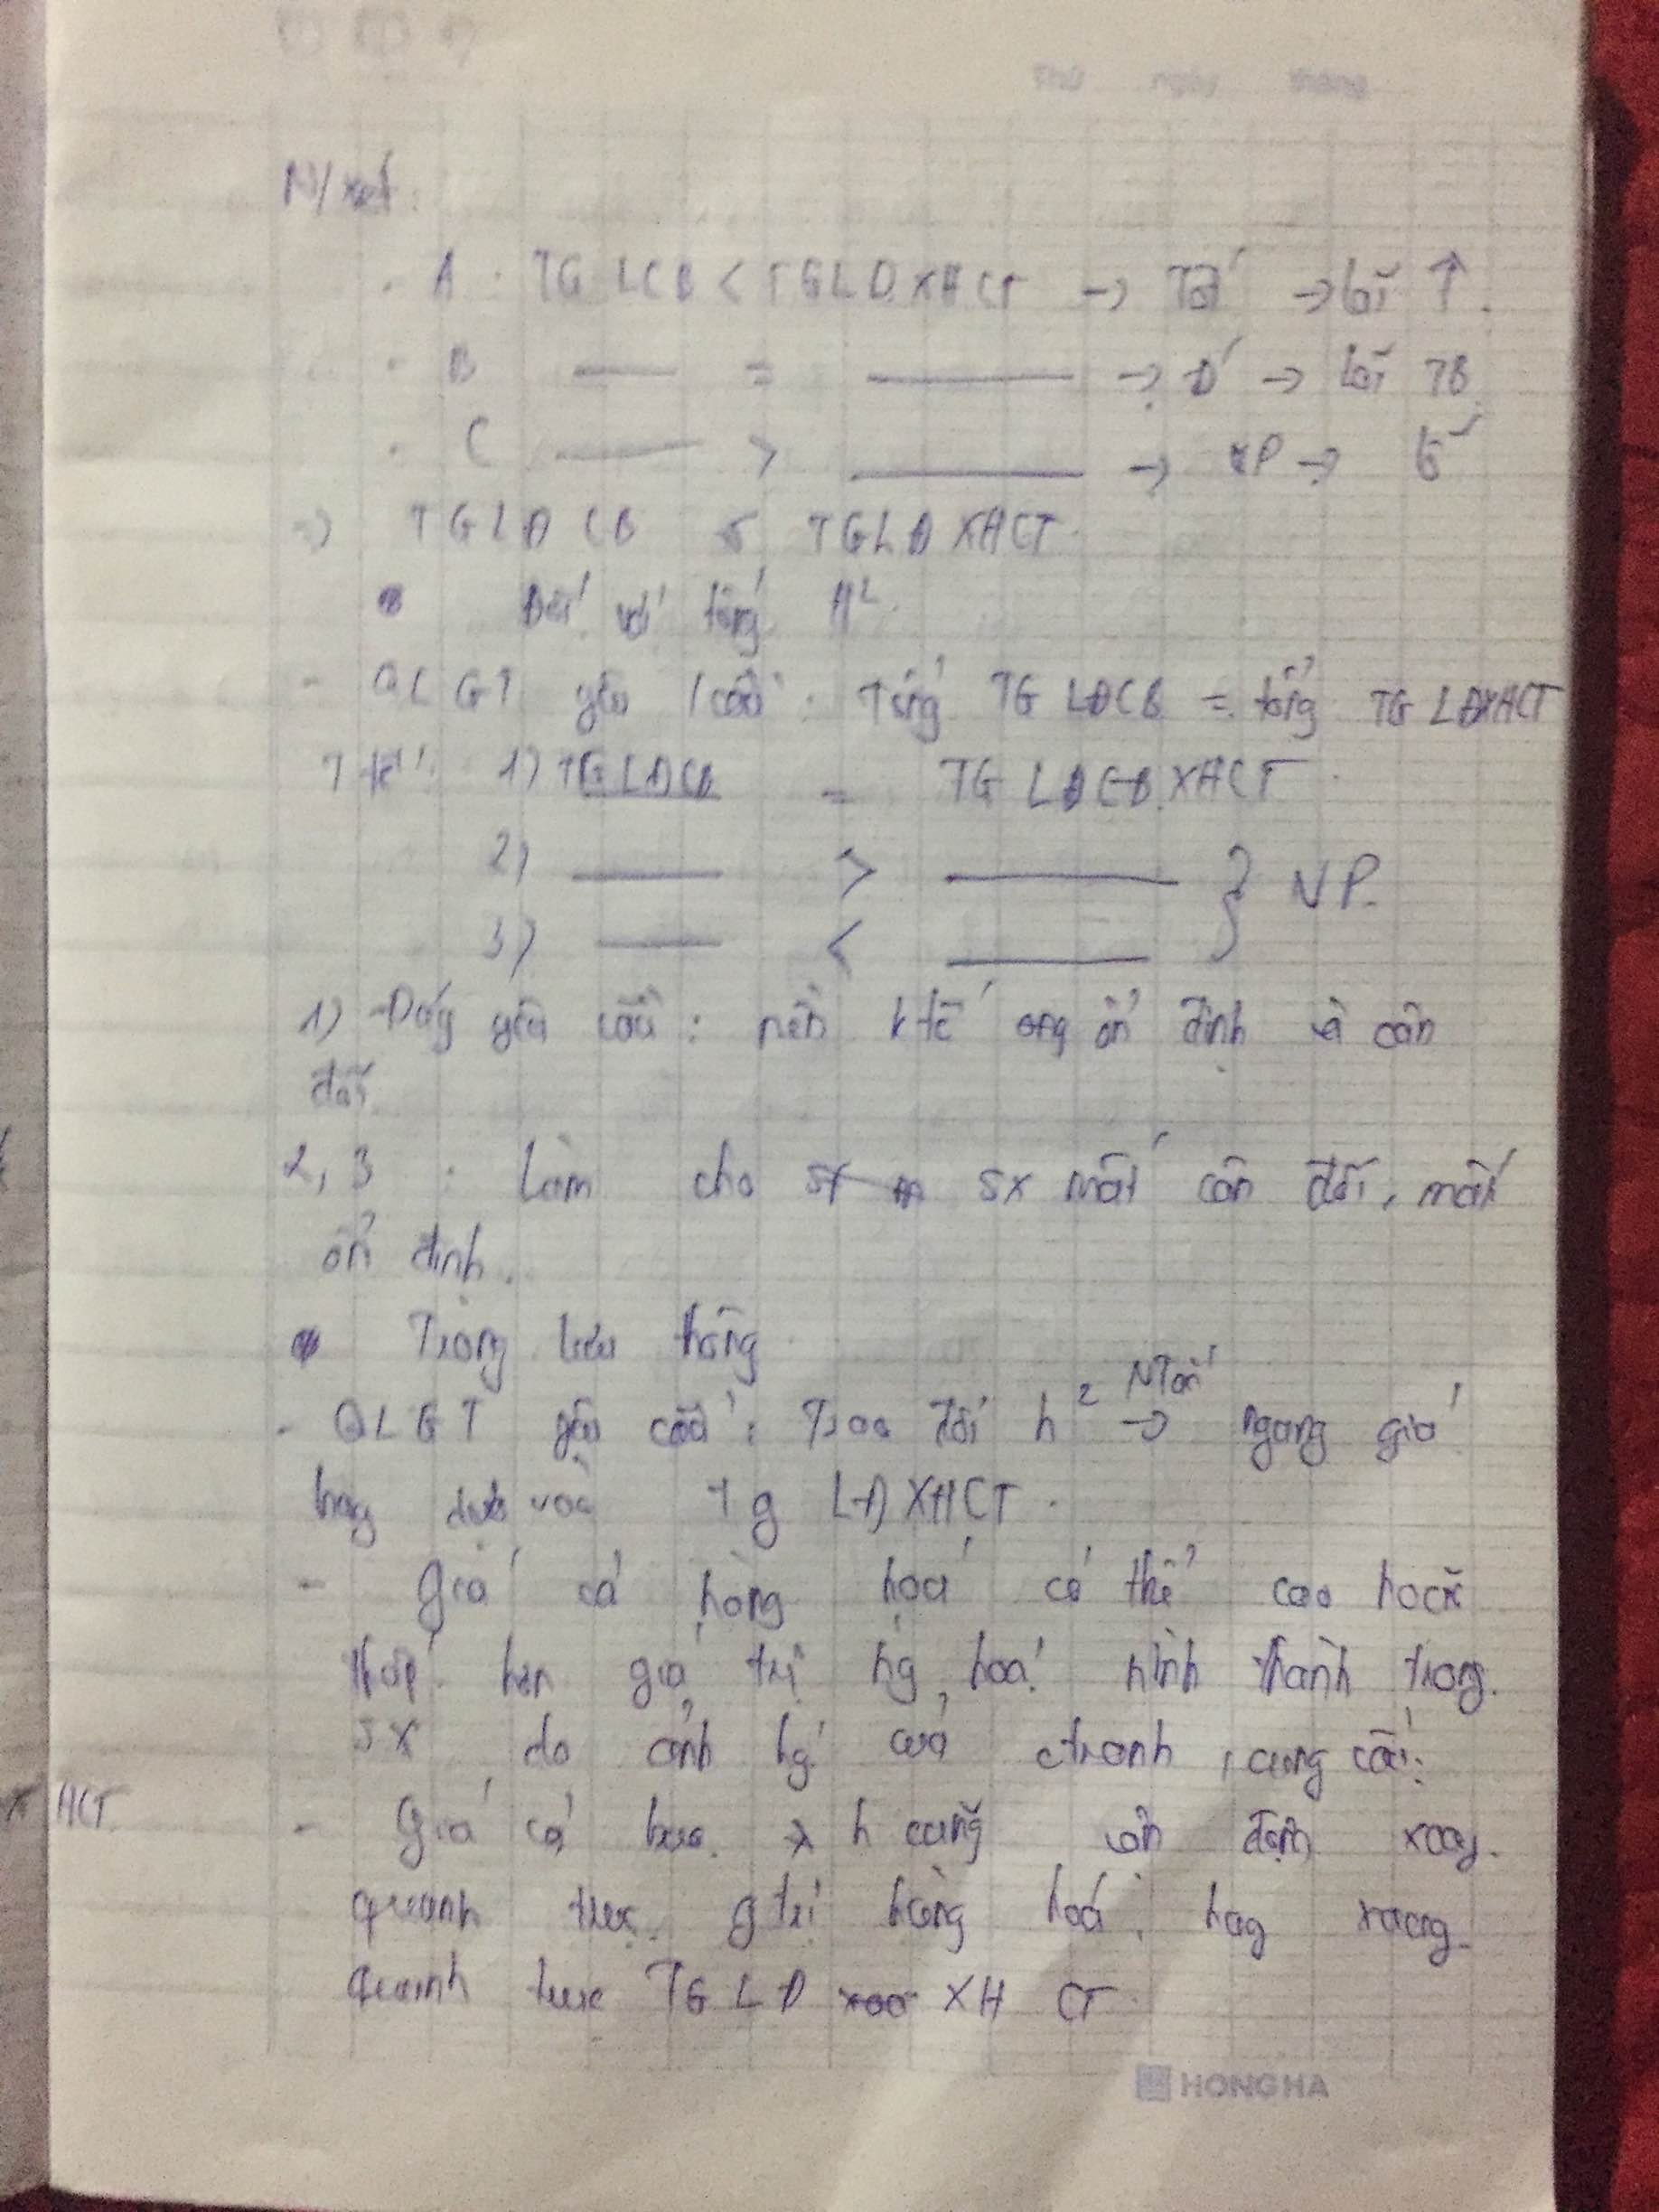 Thứ ngày tháng
N/xét:
· A : TG LCB < TGLĐXHCT → Tốt → lãi ↑.
· B — = — → Đ → lãi TB
· C — > — → P → lỗ
=> TGLĐ CB ≤ TGLĐ XHCT.
Đối với tổng H².
- QLGT yêu cầu: Tổng TG LĐCB = tổng TG LĐXHCT
T tế: 1) TGLĐCB = TG LĐCB XHCT.
2) — > — } VP.
3) — < —
1) Đáp yêu cầu: nền k tế ổn định và cân
đối
2, 3 : Làm cho sx m sx mất cân đối, mất
ổn định.
Trong lưu thông
- QLGT yêu cầu: Trao đổi h² → ngang giá
hay dựa vào tg LĐXHCT.
- giá cả hàng hoá có thể cao hoặc
thấp hơn giá trị hg hoá hình thành trong
SX do ảnh hg của ctranh, cung cầu.
HCT.
- Giá cả h cũng vận động xoay
quanh trục gtrị hàng hoá, hay xoay
quanh trục TGLĐ xoa XH CT.
HONG HA